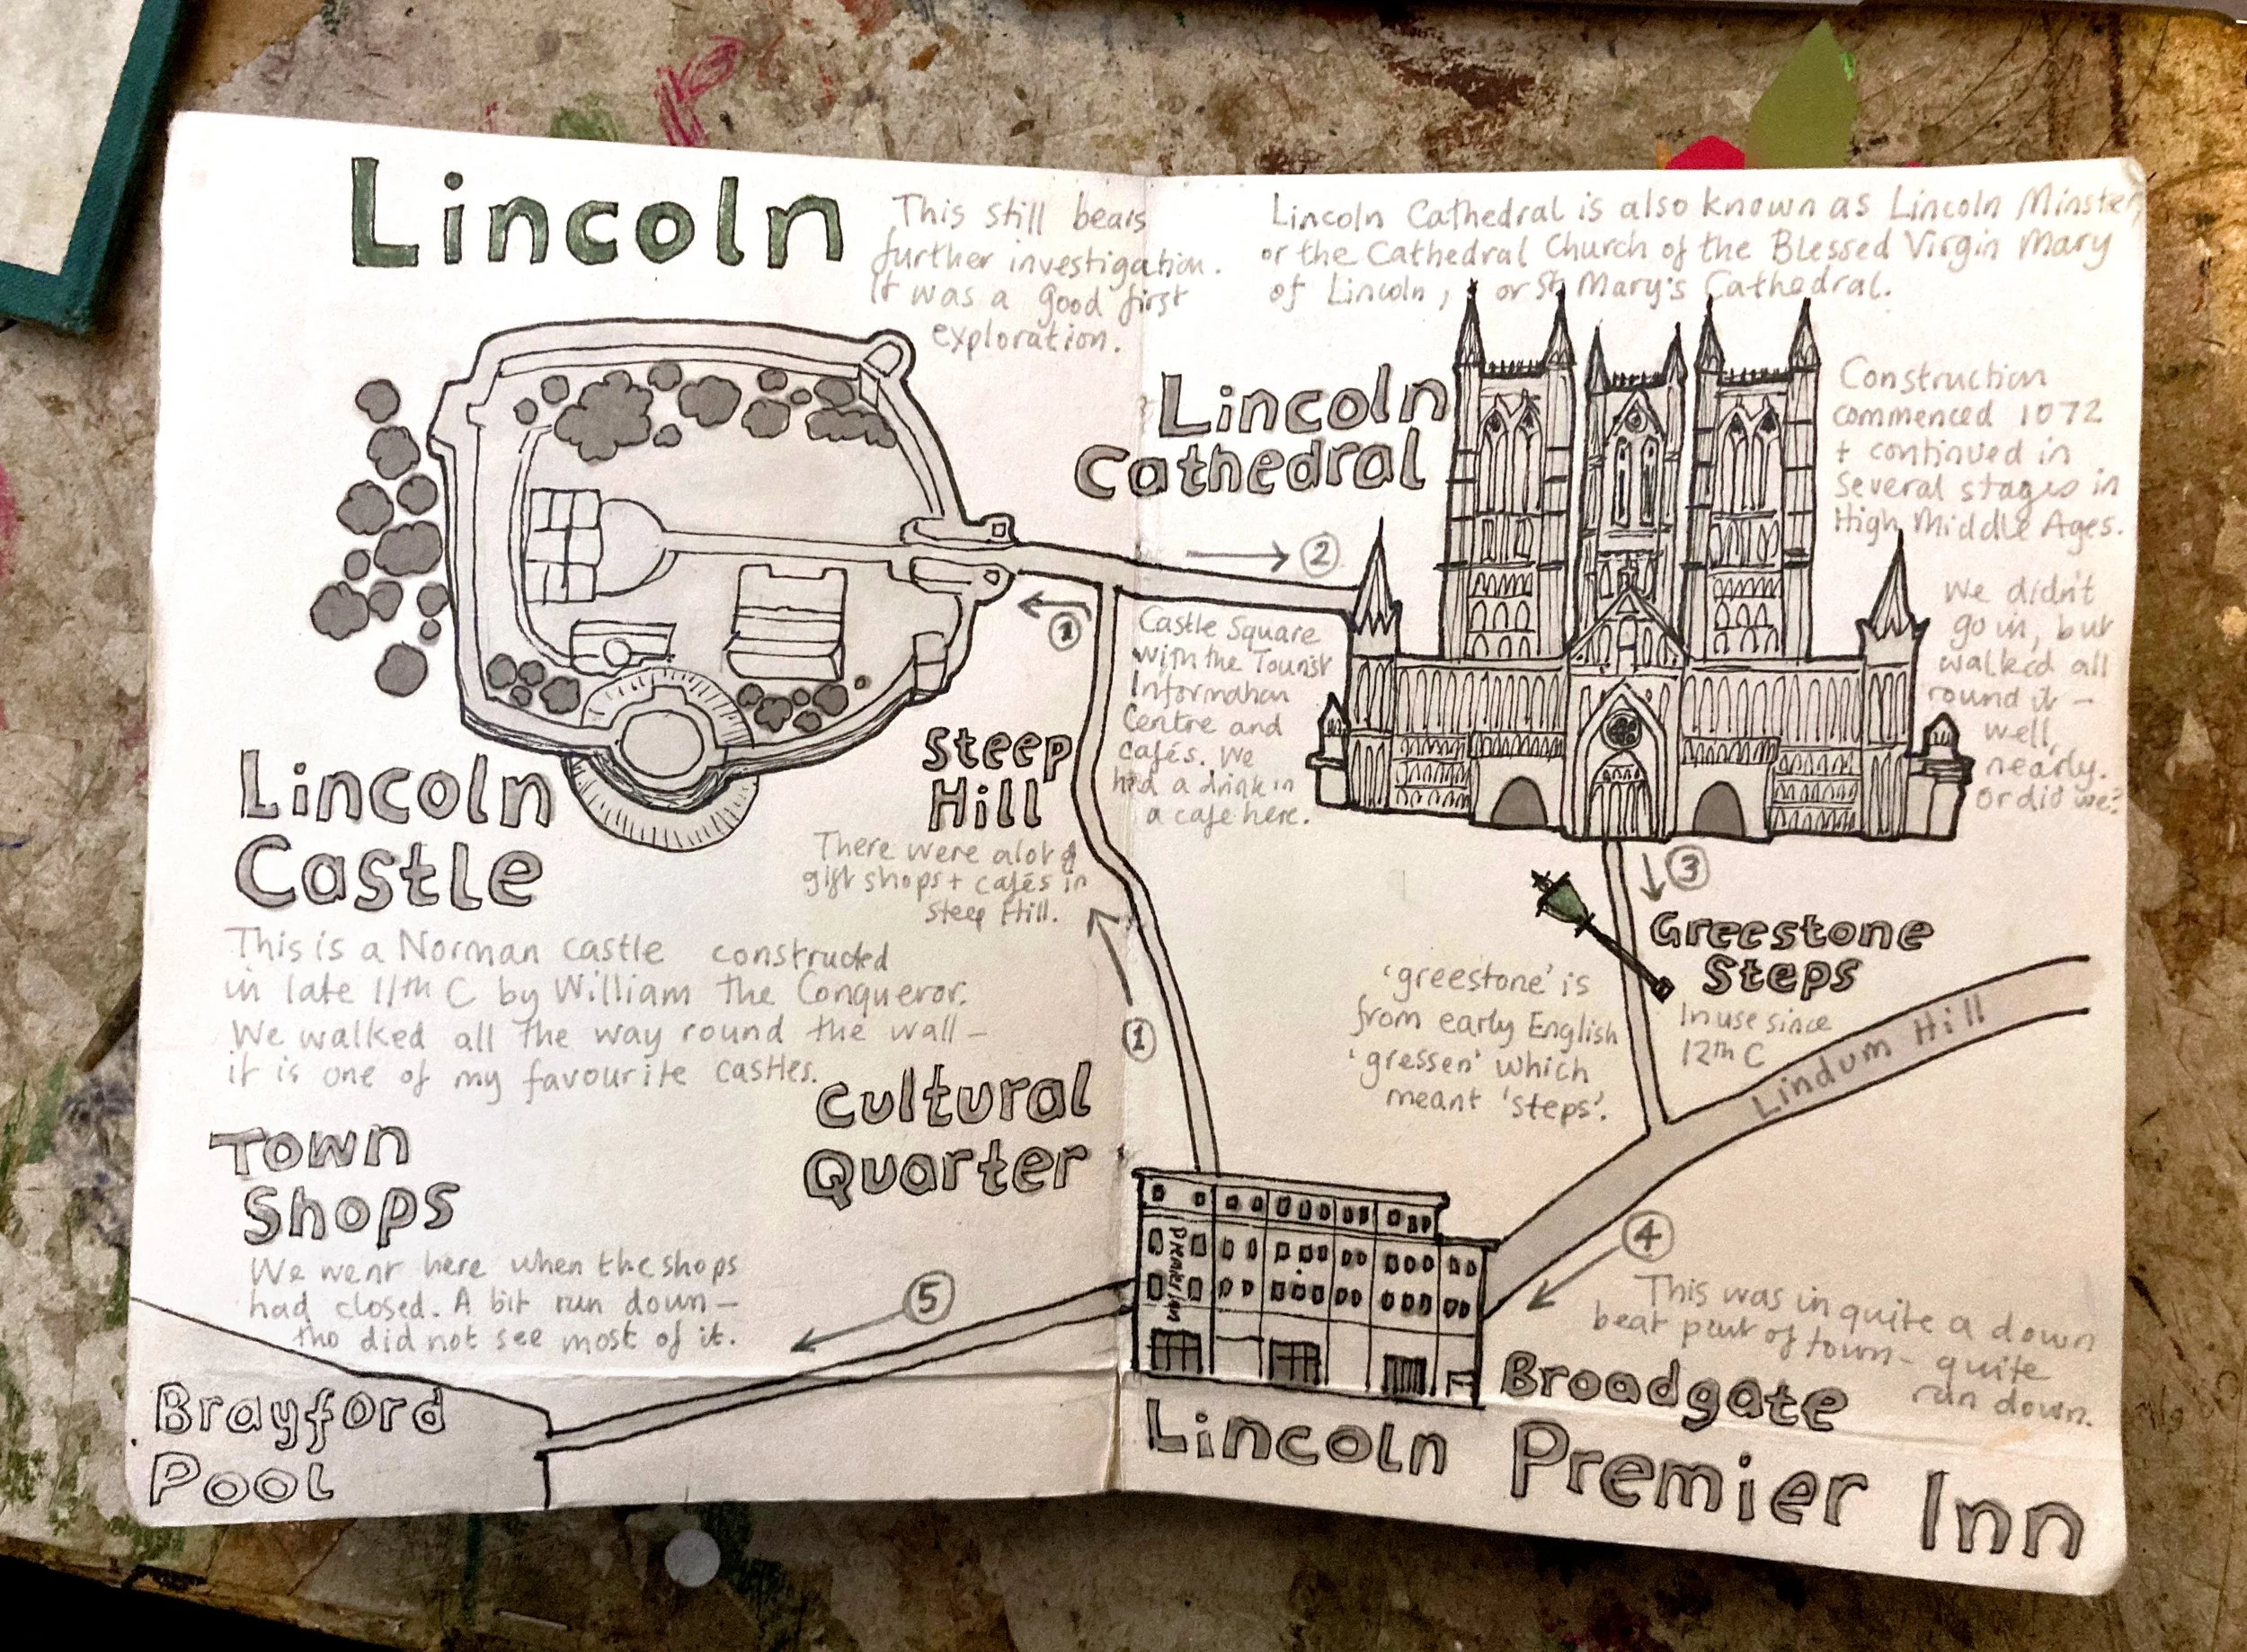 Lincoln
This still bears
further investigation.
It was a good first
exploration.
Lincoln Cathedral is also known as Lincoln Minster,
or the Cathedral Church of the Blessed Virgin Mary
of Lincoln, or St Mary's Cathedral.
Lincoln
Cathedral
Construction
commenced 1072
+ continued in
several stages in
High Middle Ages.
We didn't
go in, but
walked all
round it –
well,
nearly.
Or did we?
2
1
Castle Square
with the Tourist
Information
Centre and
cafés. We
had a drink in
a cafe here.
Steep
Hill
There were a lot of
gift shops + cafés in
Steep Hill.
Lincoln
Castle
This is a Norman castle constructed
in late 11th C by William the Conqueror.
We walked all the way round the wall –
it is one of my favourite castles.
1
3
Greestone
Steps
In use since
12th C
'greestone' is
from early English
'gressen' which
meant 'steps'.
Lindum Hill
Cultural
Quarter
Town
Shops
We went here when the shops
had closed. A bit run down –
tho did not see most of it.
5
4
This was in quite a down
beat part of town – quite
run down.
Broadgate
Premier Inn
Lincoln Premier Inn
Brayford
Pool